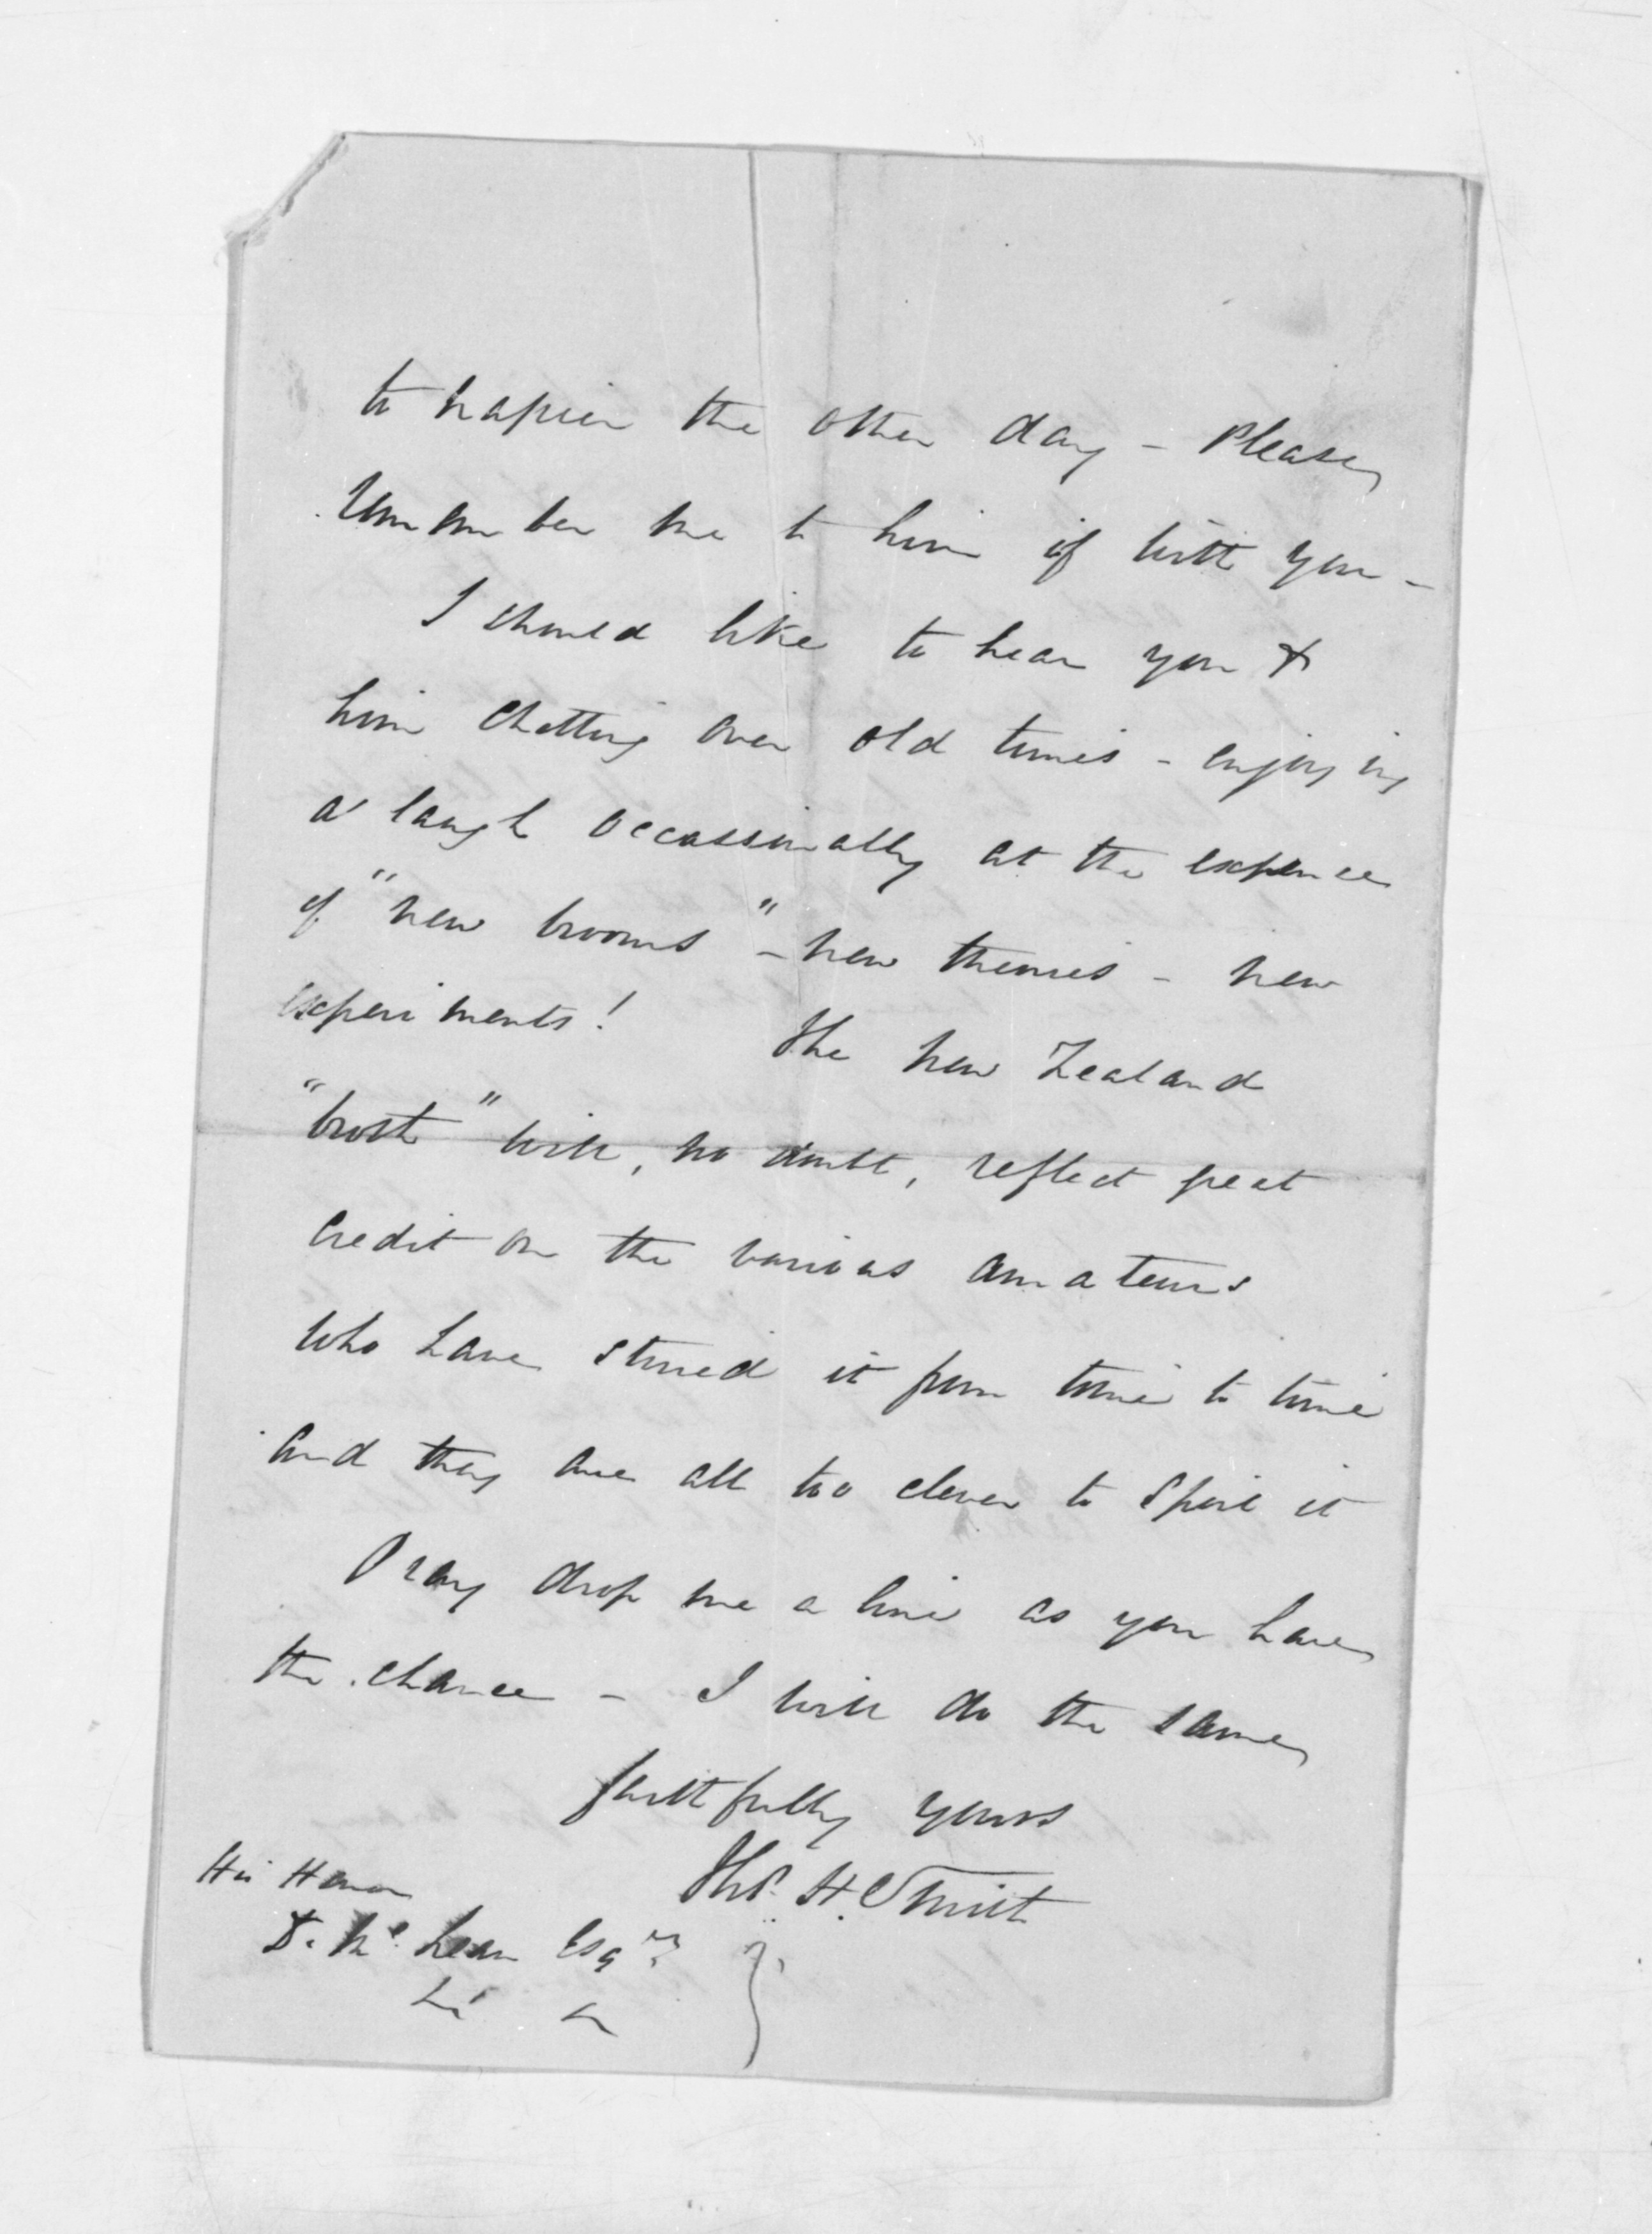 to Napier the other day - Please
remember me to him if with you -
I should like to hear you &
him chatting over old times - enjoying
a laugh occassionally at the expence
of "new brooms" - new themes - new
experiments! The New Zealand
"broth" will, no doubt, reflect great
credit on the various amateurs
who have stirred it from time to time
and they are all too clever to spoil it
Pray drop me a line as you have
the chance - I will do the same
faithfully yours
Thos. H. Smith
His Honor
D. McLean Esqre